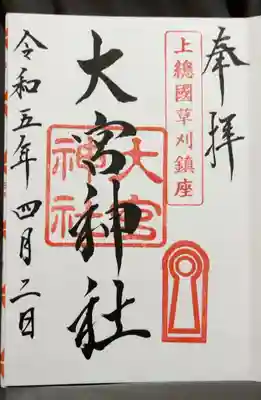 奉拝
上總國草刈鎮座
大宮神社
大宮
神社
令和五年四月二日